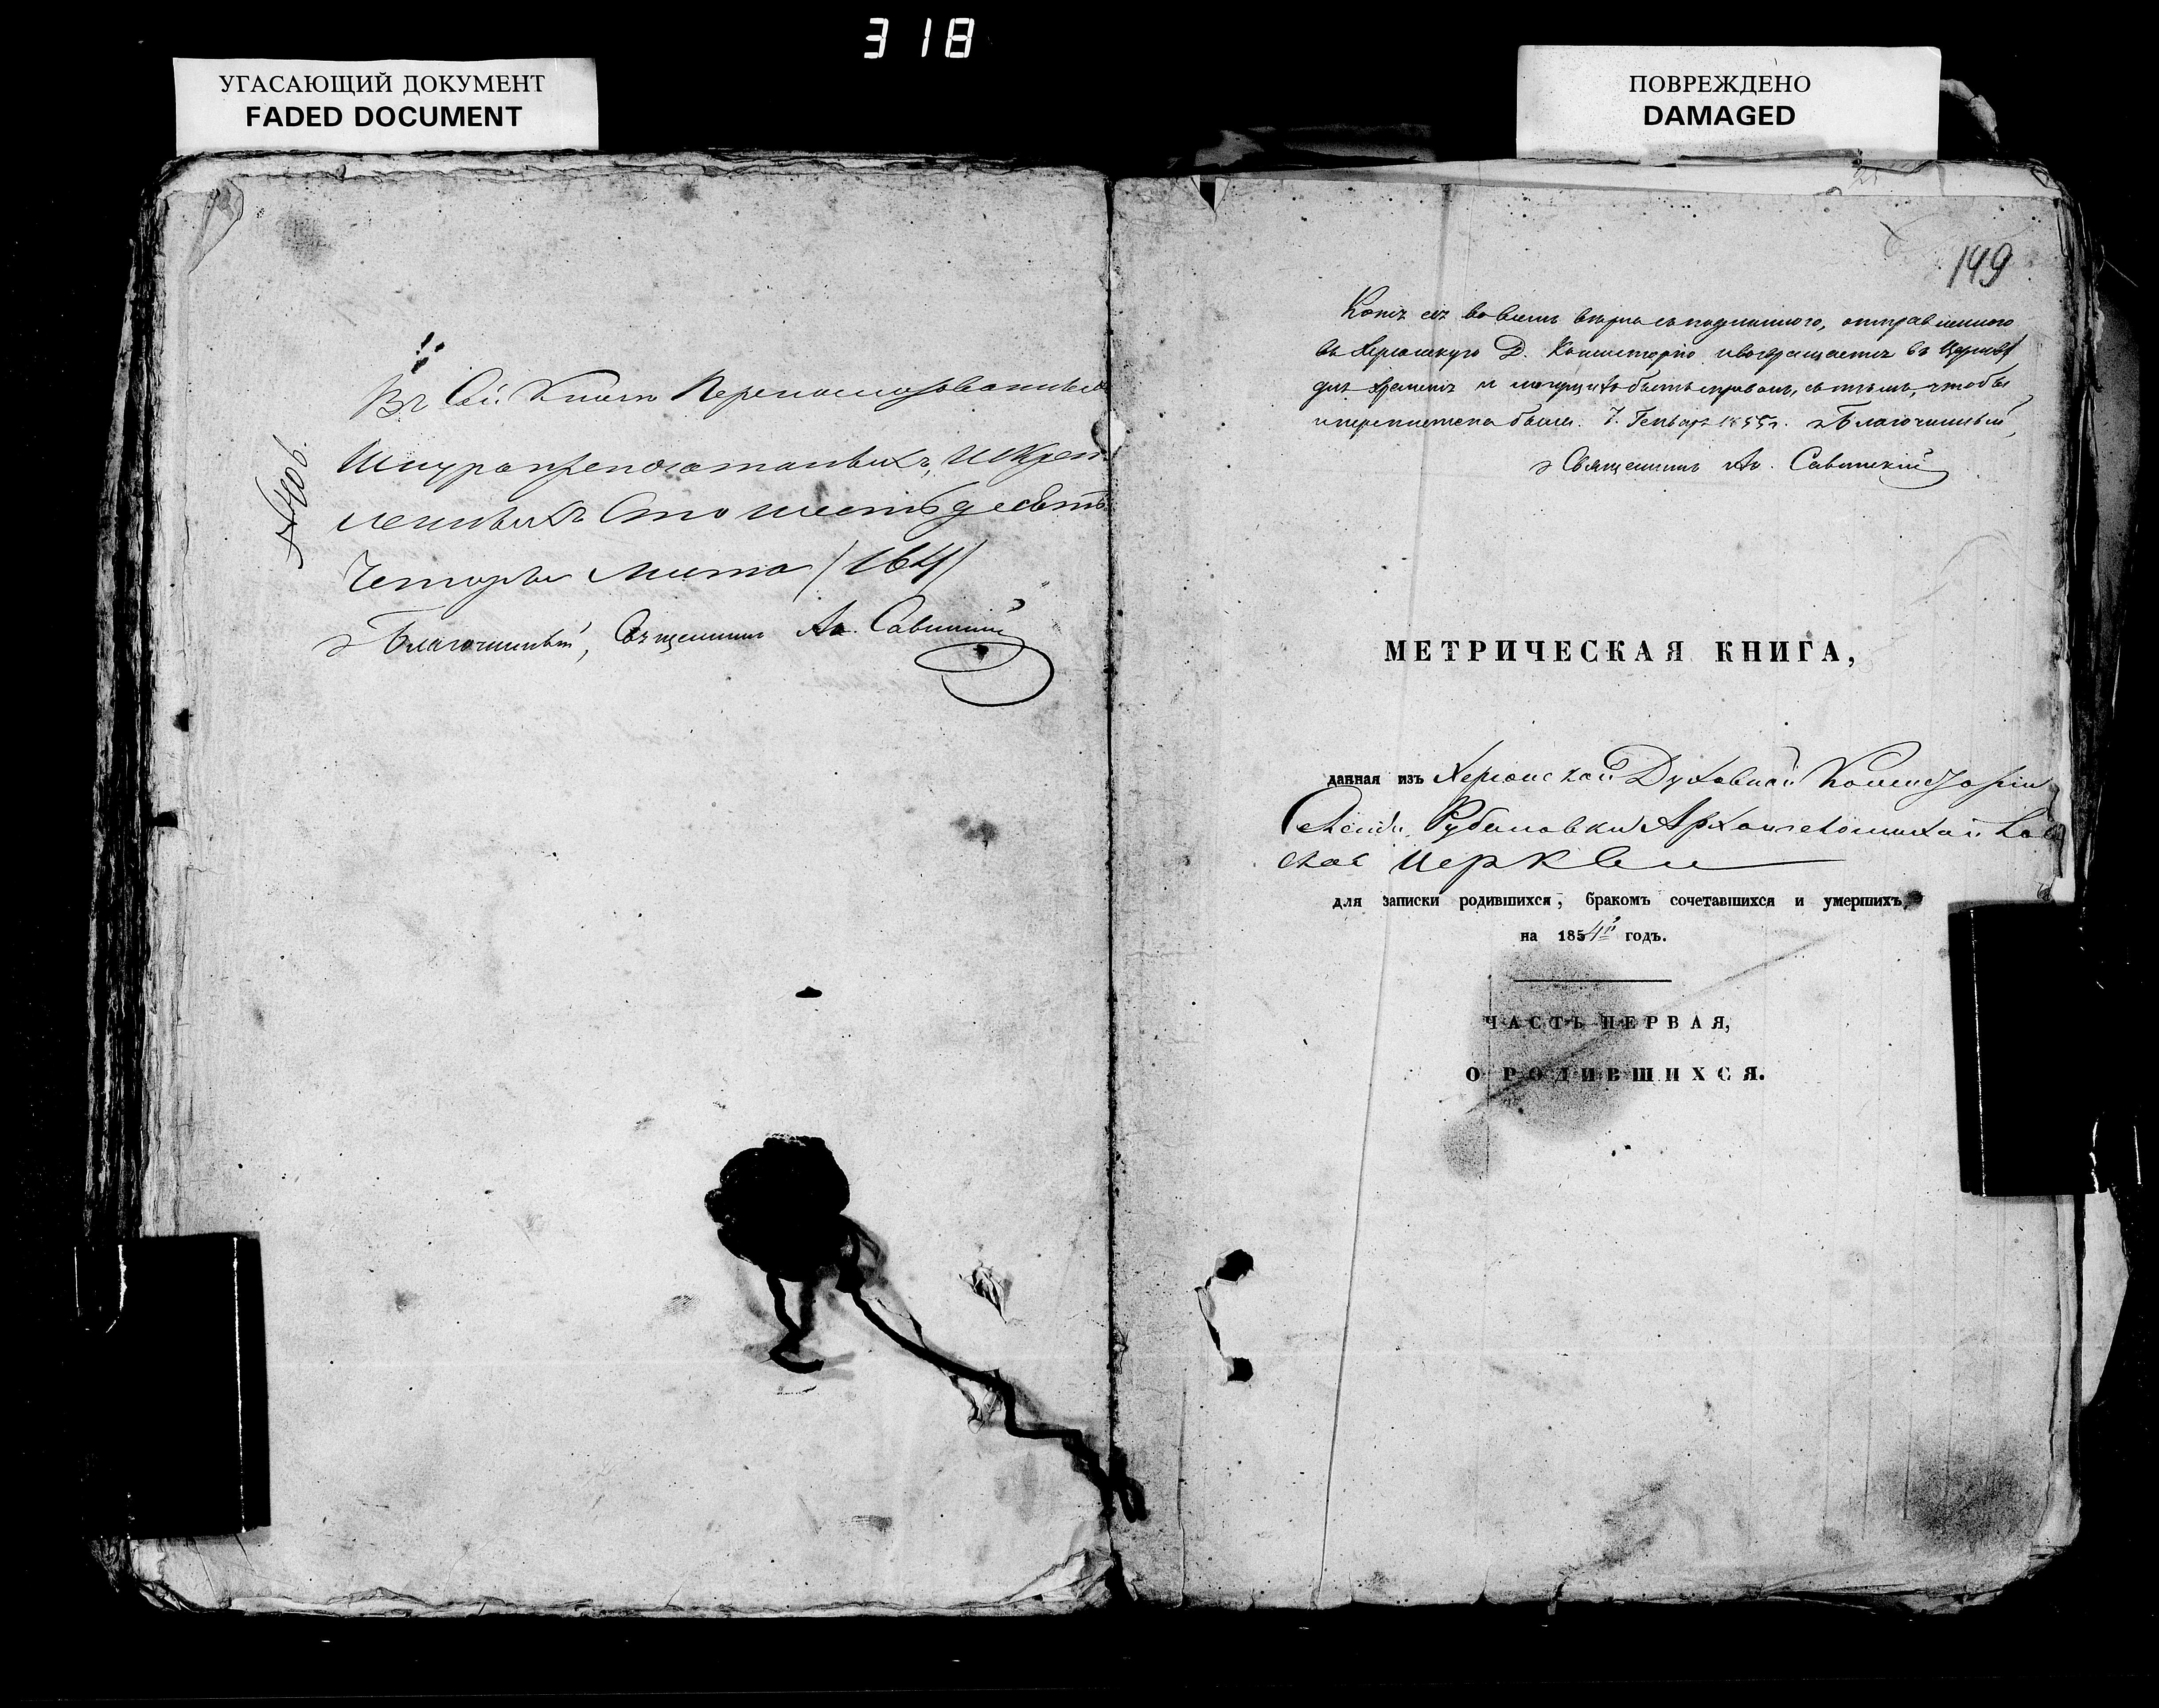 318
УГАСАЮЩИЙ ДОКУМЕНТ
FADED DOCUMENT
ПОВРЕЖДЕНО
DAMAGED
№ 406.
Въ Сей Книгѣ Перенумерованныхъ
Шнуропрепоясанныхъ, и Скреп
ленныхъ Сто шестьдесятъ
Четыре листа (164)
Благочинный, Священникъ Ал. Савицкій
149
Копія сія во всемъ вѣрна съ подлинною, отправленною
въ Херсонскую Д. Консисторію и возвращается въ Церковь
для храненія и съ тѣмъ, чтобы
и переплетена была. 7. Генваря 1855 г. Благочинный,
Священникъ Ал. Савицкій
МЕТРИЧЕСКАЯ КНИГА,
данная изъ Херсонской Духовной Консисторіи
Рубановки Архангело
Церкви
для записки родившихся, бракомъ сочетавшихся и умершихъ,
на 1854й годъ.
ЧАСТЬ ПЕРВАЯ,
О РОДИВШИХСЯ.